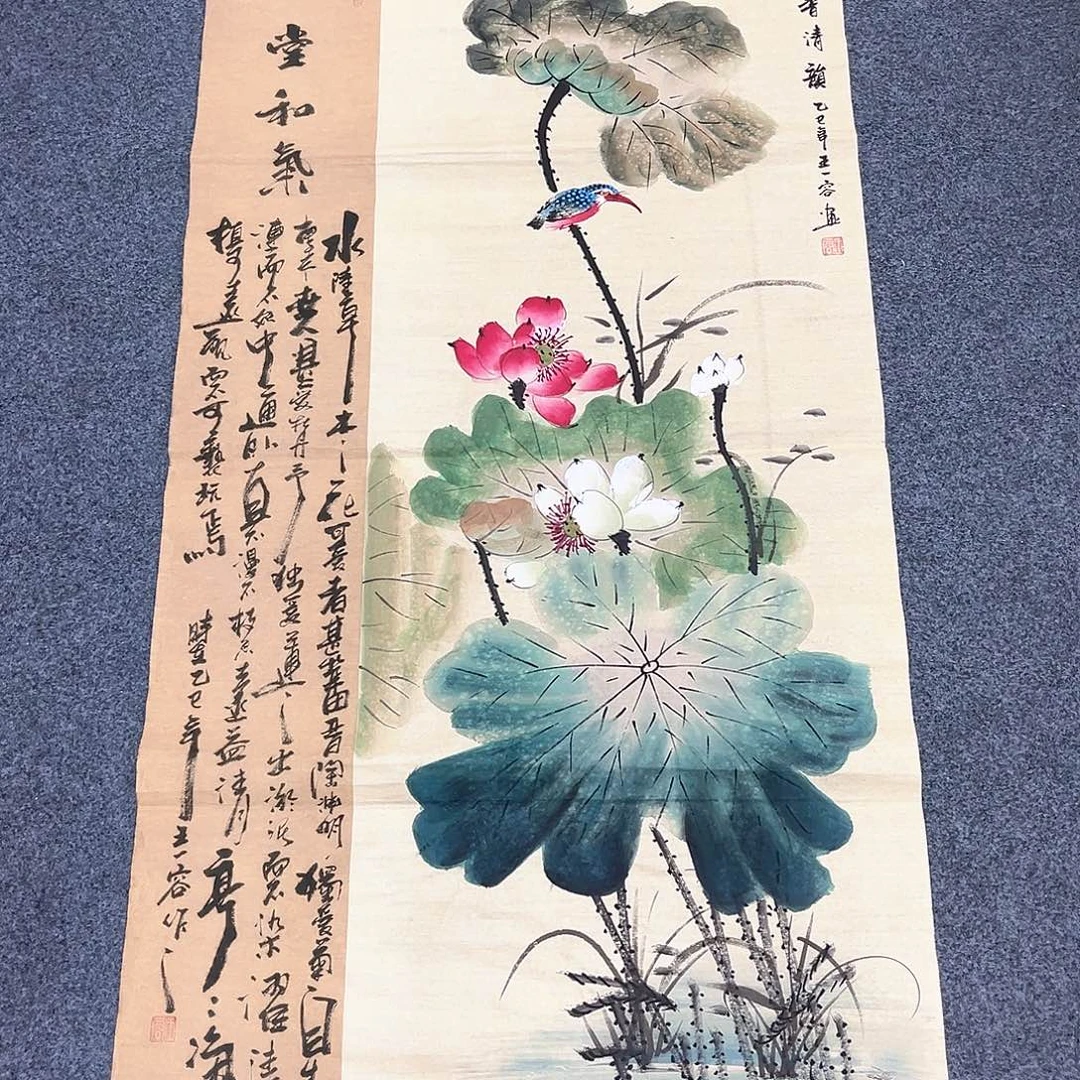 香清韻
乙巳年王一容畫
堂和氣
水陸草木之花可愛者甚蕃晉陶淵明獨愛菊自
愛牡丹予獨愛蓮之出淤泥而不染濯清
漣而不妖中通外直不蔓不枝香遠益清亭亭淨
植可遠觀而不可褻玩焉
乙巳年王一容作